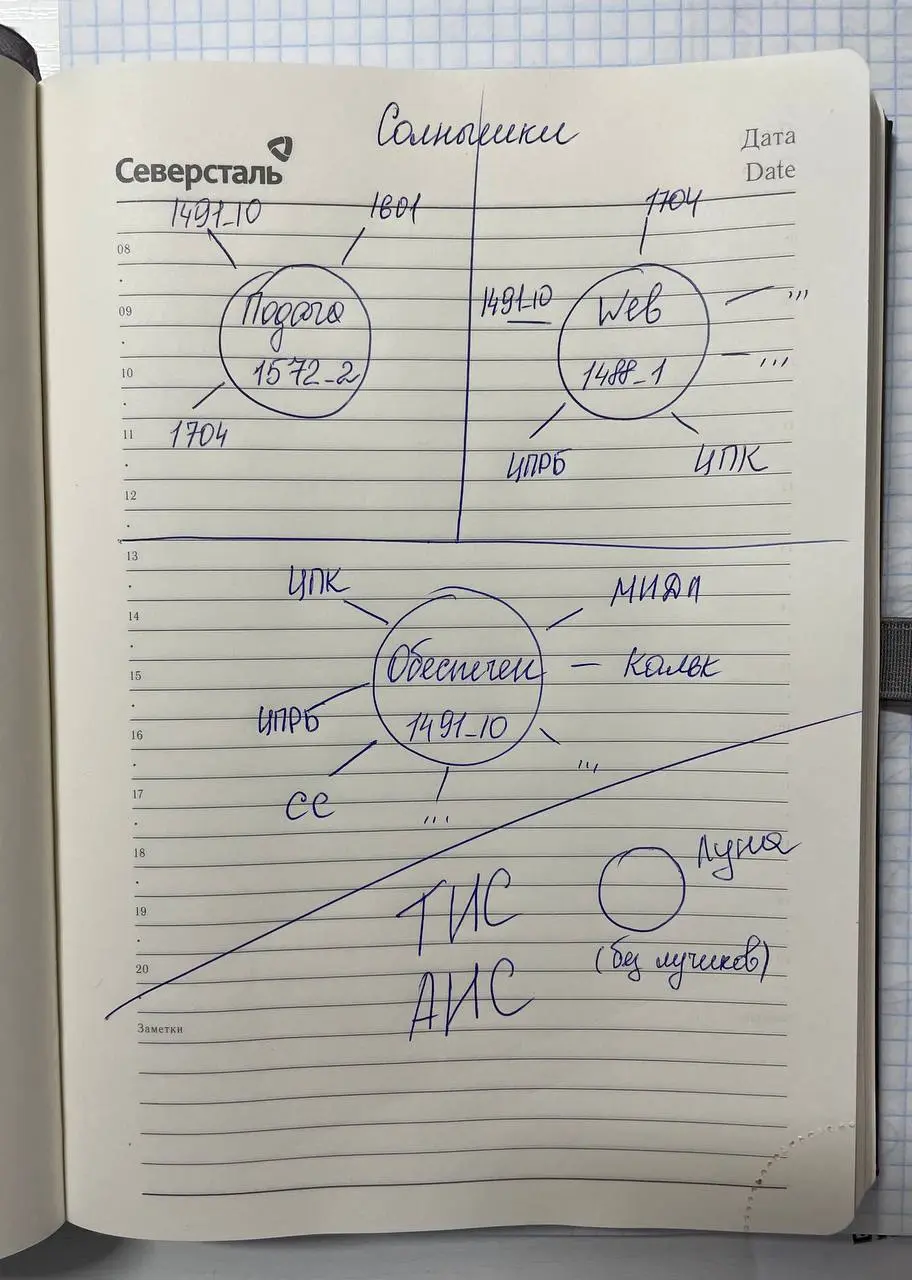 Солнышки
Северсталь
Дата
Date
1491_10
1601
Подача
1572_2
1704
1704
1491_10
Web
1488_1
...
...
ЦПРБ
ЦПК
08
09
10
11
12
13
14
15
16
17
18
19
20
ЦПК
МИДА
Обеспечен
1491_10
Кальк
ЦПРБ
СС
...
...
Луна
(без лучиков)
ТИС
АИС
Заметки